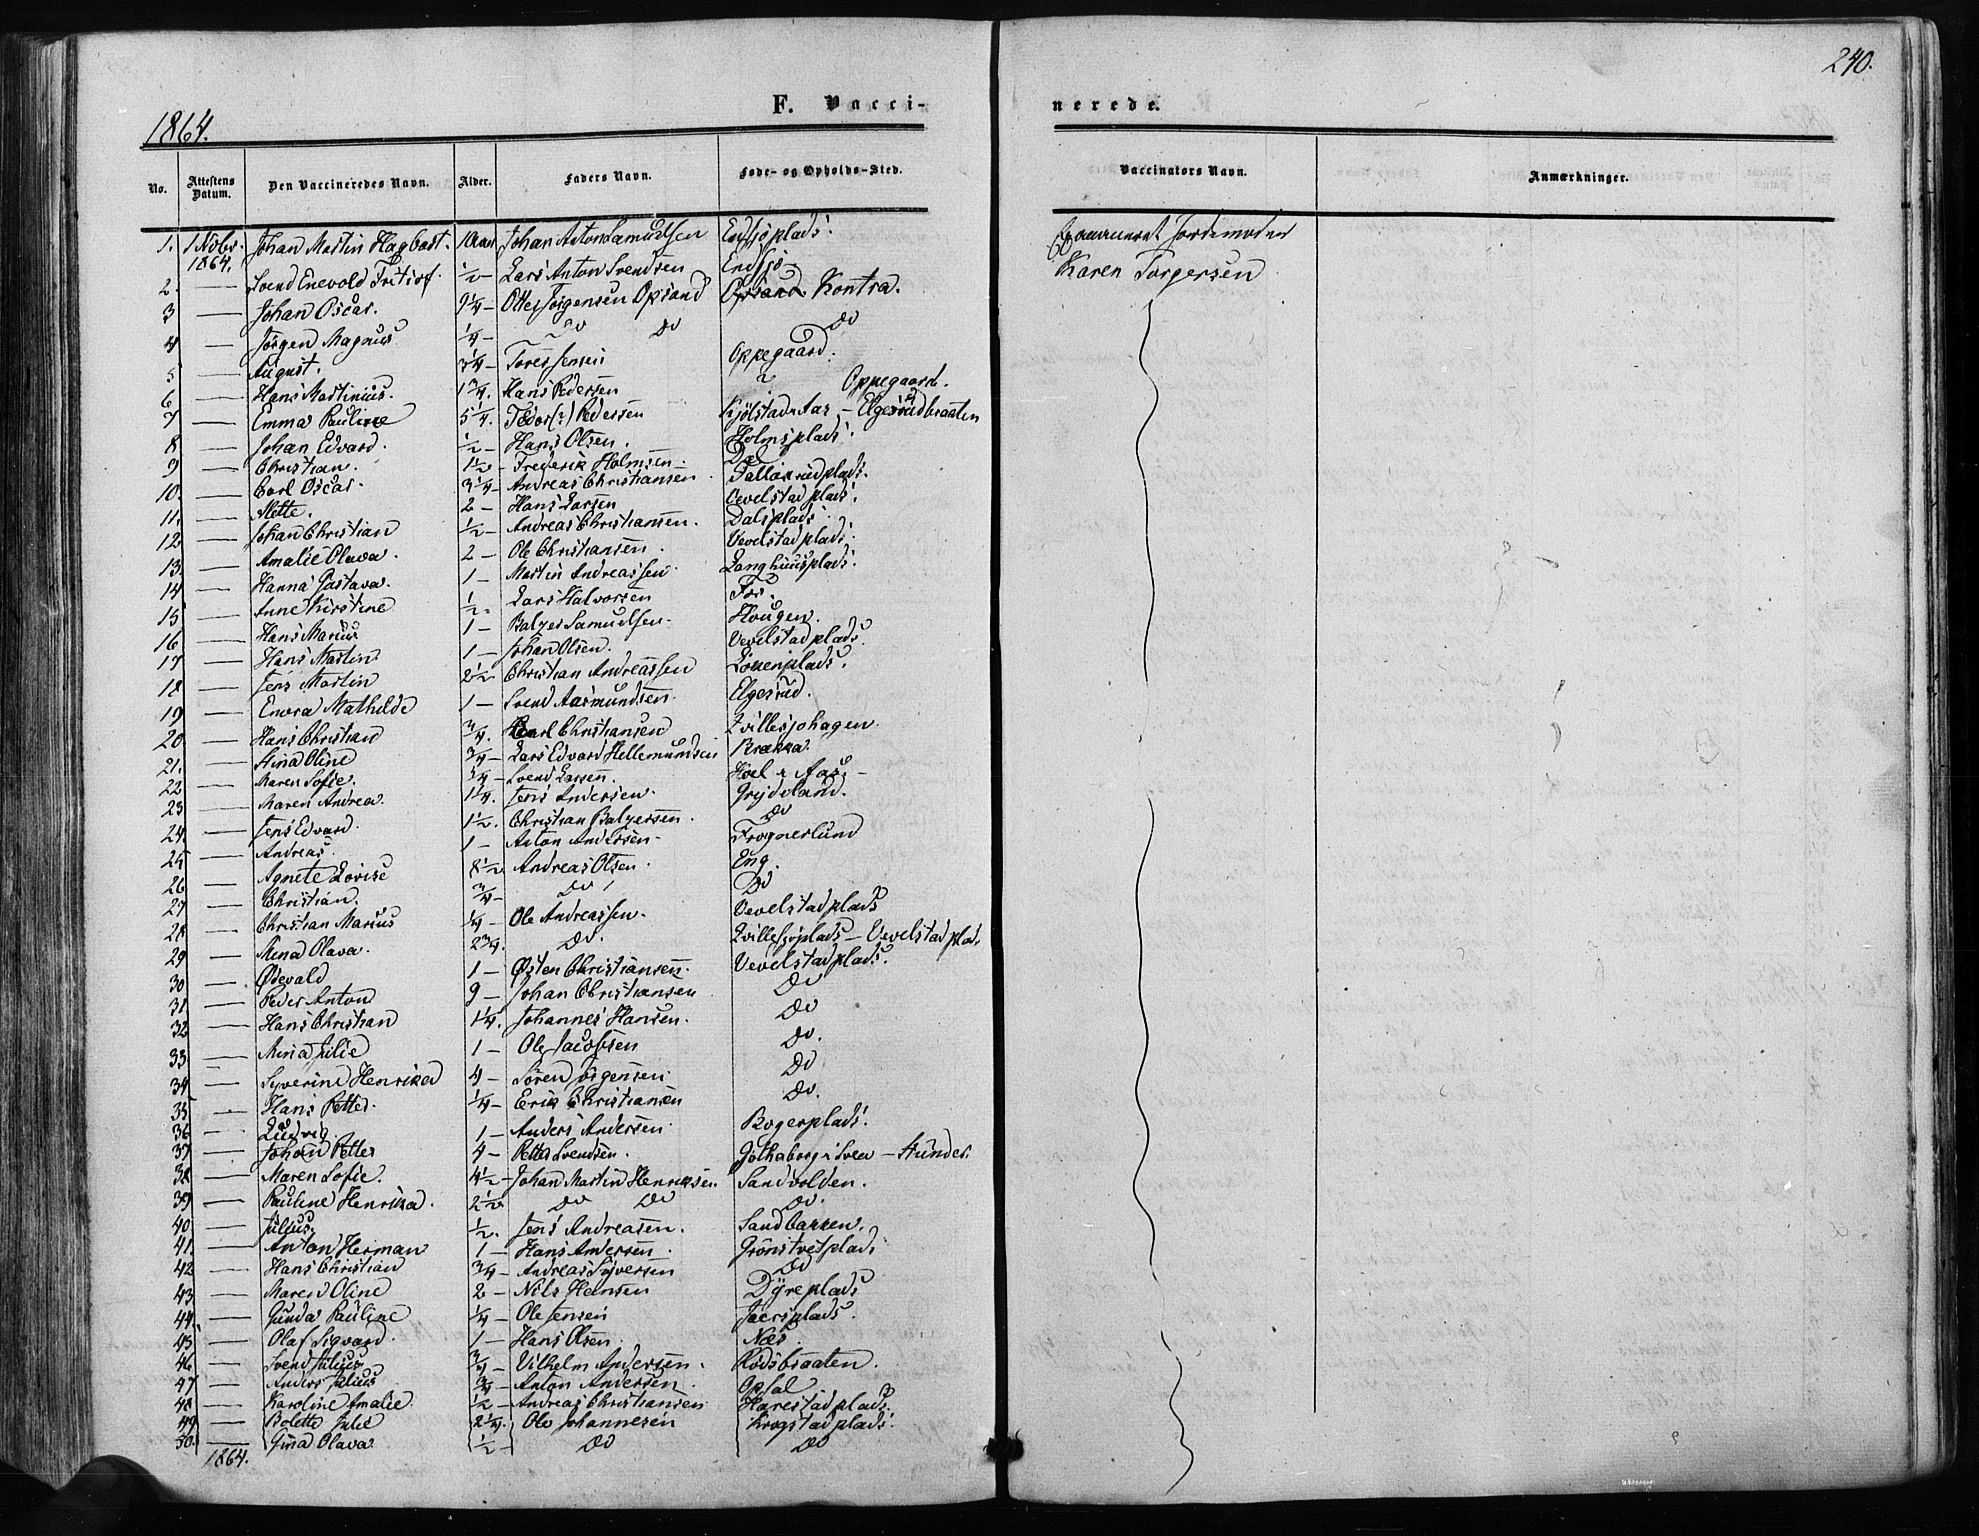 240.
1864.
F. Vacci-
nerede.
No. Attestens Datum. Den Vaccineredes Navn. Alder. Faders Navn. Føde- og Opholds-Sted. Vaccinators Navn. Anmærkninger.
1. 1 Novbr. 1864. Johan Martin Hagbart. 10 Aar Johan Anton Samuelsen Endsjöplads. Examineret Jordemoder
2. — Svend Enevold Fritiof. ½ — Lars Anton Svendsen Endsjö — Karen Torgersen
3 — Johan Oscar. 9¼ — Otter Jörgensen Opsand Opsand Kontra.
4 — Jörgen Magnus ¼ — Do Do Do
5 — August. ¾ — Tores Jensen Oppegaard.
6 — Hans Martinius. 1¾. Hans Pedersen Oppegaard.
7 — Emma Pauline 5¼. Fedor(?) Pedersen Kjölstad i Aas — Elgesrudbraaten
8 — Johan Edvard. ½ — Hans Olsen. Holmsplads.
9 — Christian. 1½ — Frederik Holmsen. Do
10. — Carl Oscar. 3¼ — Andreas Christiansen Fallaxrudplads.
11. — Mette. 2 — Hans Larsen Vevelstadplads.
12 — Johan Christian ½ — Andreas Christiansen. Dalsplads.
13 — Amalie Olava. 2 — Ole Christiansen. Vevelstadplads.
14 — Hanna Gustava. 1 — Martin Andreassen Langhuusplads.
15 — Anne Kirstine ½. Lars Halvorsen Fos.
16 — Hans Marius 1 — Balzer Samuelsen. Hougen.
17 — Hans Martin 1 — Johan Olsen. Vevelstadplads.
18 — Jens Martin 2½ Christian Andreassen
19 — Enora Mathilde 1 — Svend Aasmundsen. Elgesrud.
20 — Hans Christian ¾. Carl Christiansen Tvillesjohagen.
21. — Stina Oline ¾ — Lars Edvard Hellemundsen Brække.
22 — Maren Sofie. ¾ — Svend Larsen. Hoel i Aas —
23 — Maren Andrea. 1¼. Jens Andersen. Grydeland.
24 — Jens Edvard. 1½. Christian Balzersen. Do
25 — Andreas. 1 — Anton Andersen Frognerlund
26 — Agnete Lovise 8½ Andreas Olsen. Eng.
27 — Christian. ¾ — Do Do
28 — Christian Marius ¼ — Ole Andreassen. Vevelstadplads
29 — Mina Olava. 2¾. Do. Tvillesjöplads — Vevelstadplads
30 — Osevald 1 — Østen Christiansen. Vevelstadplads.
31 — Peder Anton 9 — Johan Christiansen Do
32 — Hans Christian 1¼. Johannes Hansen. Do
33 — Mina Julie 1 — Ole Jacobsen Do.
34 — Syverine Henrika 4 — Sören Jörgensen Do
35 — Hans Petter. ¼ — Erik Christiansen Do.
36 — Ludvig. 1 — Anders Andersen Bogerplads.
37 — Johan Petter 4 — Petter Svendsen. Göthaborg i Sver — Hunder.
38 — Maren Sofie. 4½ — Johan Martin Henriksen Sandvolden.
39 — Pauline Henrika. 2½ Do Do Do.
40 — Julius. ½. Jens Andreasen. Sandbakken.
41. — Anton Herman 1 — Hans Andersen. Grönstvetplads
42 — Hans Christian ¾ — Andreas Syversen Do
43 — Maren Oline 2 — Nils Hansen Dyreplads
44. — Gunda Pauline ¼ — Ole Jensen Jaersplads.
45 — Olaf Sigvard. 1 — Hans Olsen. Næs.
46 — Svend Julius ¾ — Vilhelm Andersen. Rödsbraaten.
47 — Anders Julius ¾ — Anton Andersen. Opsal
48 — Karoline Amalie. ½ — Andreas Christiansen Harestadplads.
49 — Bolette Julie 2¼. Ole Johannesen Krogstadplads.
50. — Gina Olava ½ — Do Do
1864.